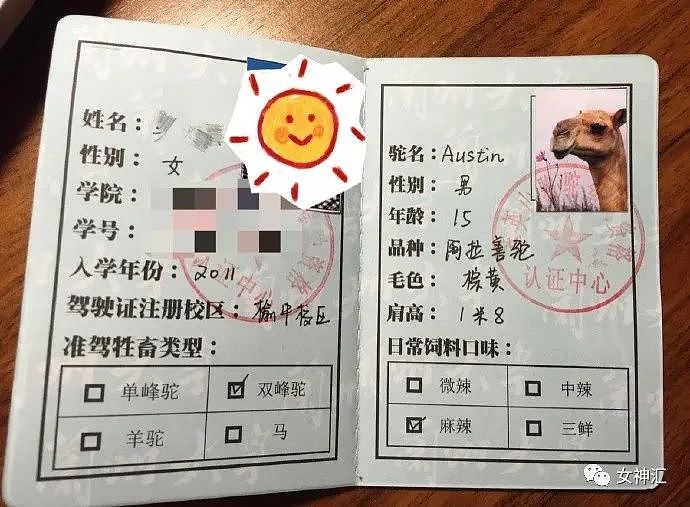 姓名：
性别： 女
学院：
学号：
入学年份： 2011
驾驶证注册校区： 榆中校区
准驾牲畜类型：
□ 单峰驼
☑ 双峰驼
□ 羊驼
□ 马
驼名：Austin
性别： 男
年龄： 15
品种： 阿拉善驼
毛色： 棕黄
肩高： 1米8
日常饲料口味：
□ 微辣
□ 中辣
☑ 麻辣
□ 三鲜
认证中心
女神汇